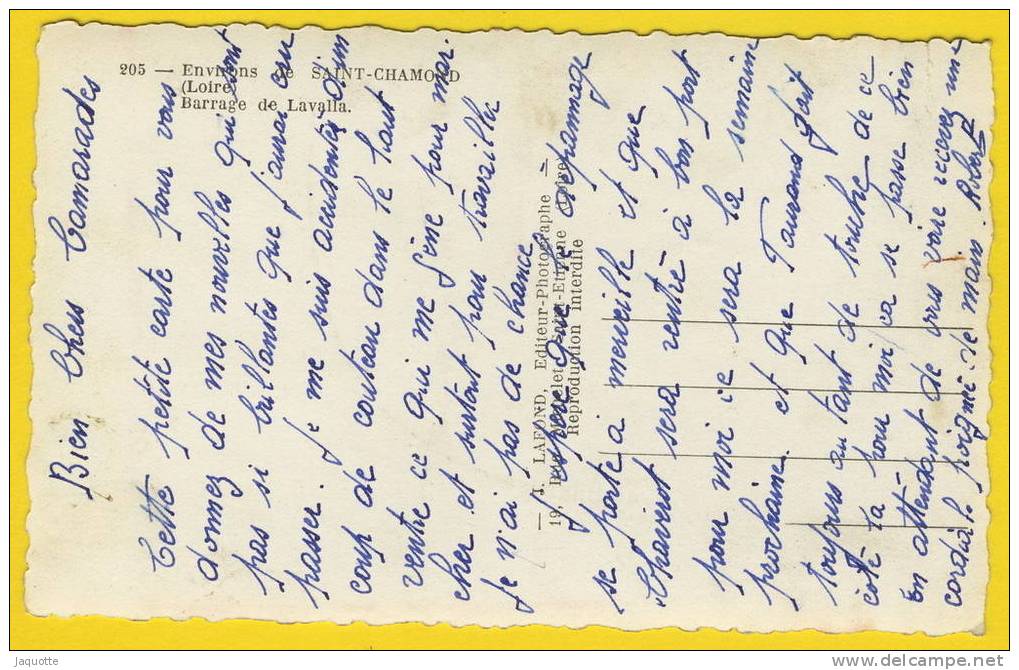 205 — Environs de SAINT-CHAMOND
(Loire)
Barrage de Lavalla.
— J. LAFOND, Editeur-Photographe —
19, Rue Michelet, Saint-Etienne (Loire)
Reproduction interdite
Bien Chers Camarades
Cette petite carte pour vous
donnez de mes nouvelles qui sont
pas si brillantes que j'aurai cru
passer. Je me suis accidenter d'un
coup de couteau dans le haut
ventre ce qui me gène pour mar
cher et surtout pour travaille
je n'ai pas de chance
J'espère que le dépannage
se porte a merveille et que
Chavirot sera rentré à bon port
pour moi ce sera la semaine
prochaine. et que Taurand fait
toujours au tant de touche de ce
coté la pour moi ça se passe bien
En attendant de vous voire recevez une
cordiale poigné de main. Robert
Jaquotte
www.delcampe.net